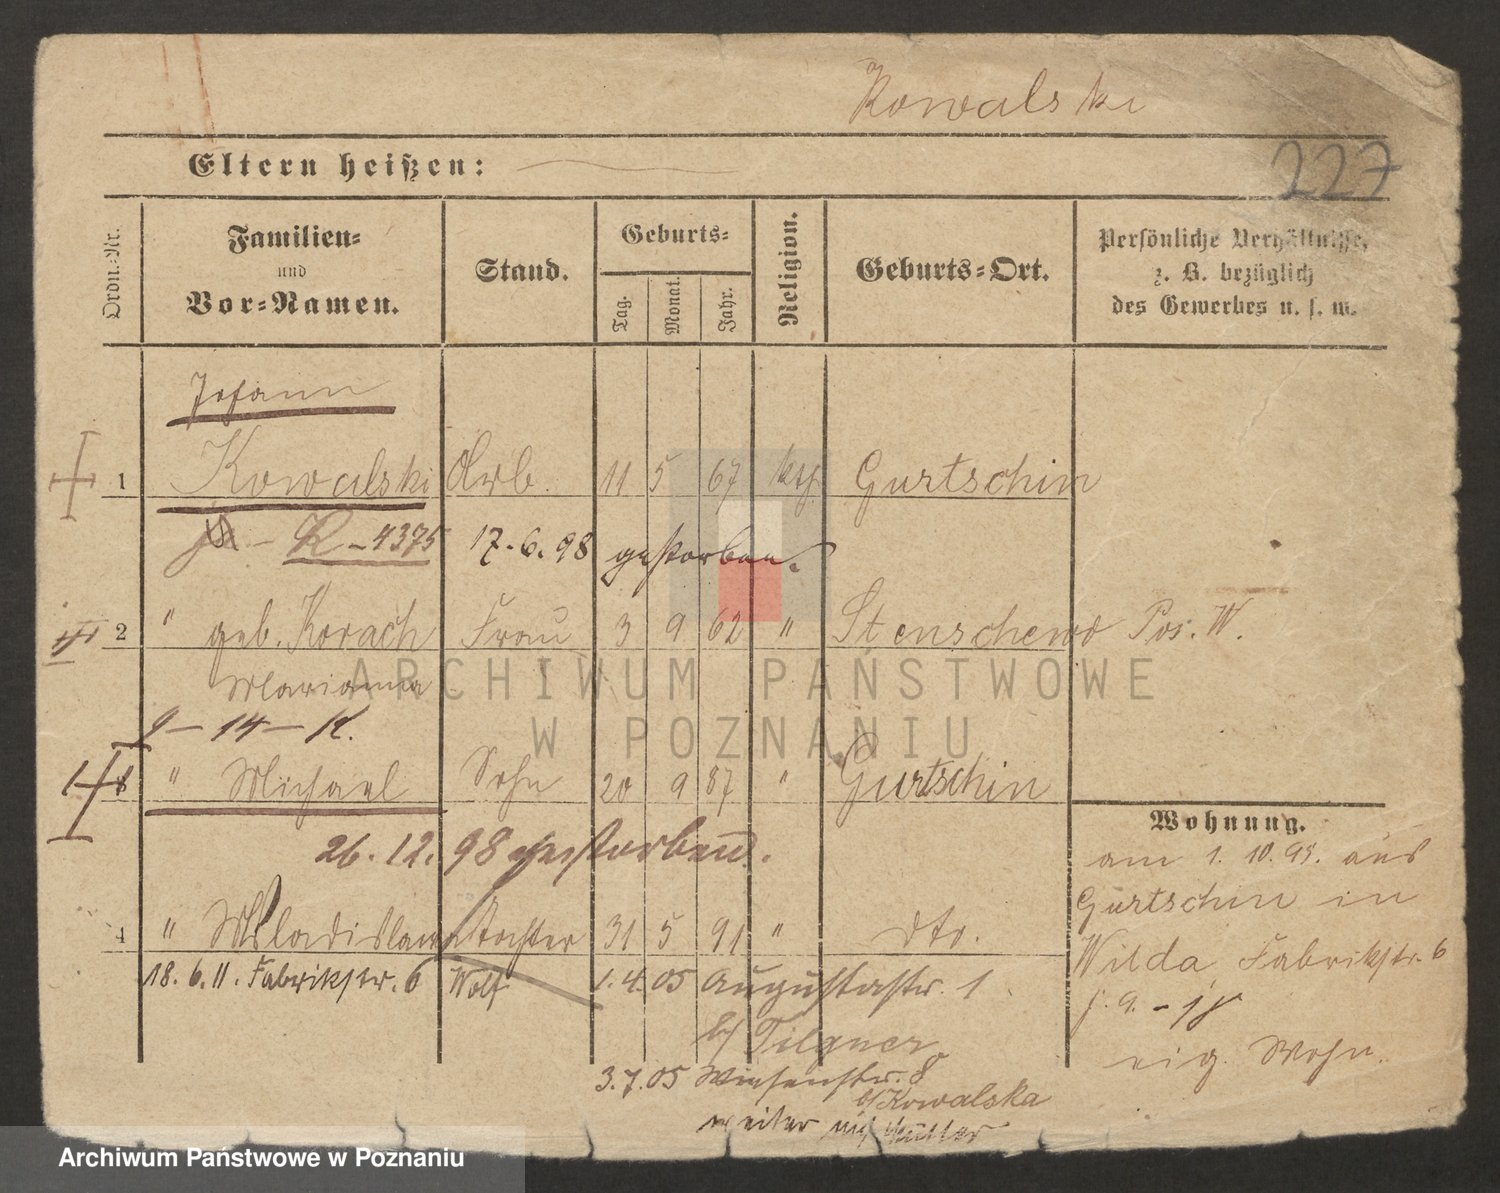 Kowalski
227
Eltern heißen:
Ordn.-Nr.
Familien-
und
Vor-Namen.
Stand.
Geburts-
Tag.
Monat.
Jahr.
Religion.
Geburts-Ort.
Persönliche Verhältnisse,
z. B. bezüglich
des Gewerbes u. s. w.
Johann
1 Kowalski Arb. 11 5 67 kth. Gurtschin
R-4375 17.6.98 gestorben.
2 " geb. Korach Frau 3 9 62 " Stenschewo Pos. W.
Marianna
9-14-K.
" Michael Sohn 20 9 87 " Gurtschin
26.12.98 gestorben.
4 " Wladislawa Tochter 31 5 91 " dto.
18.6.11. Fabrikstr. 6 Wolf 1.4.05 Augustastr. 1
b/ Tilgner
3.7.05 Wiesenstr. 8
b/ Kowalska
weiter Mutter
Wohnung.
am 1.10.95. aus
Gurtschin in
Wilda Fabrikstr. 6
eig. Wohn.
ARCHIWUM PAŃSTWOWE
W POZNANIU
Archiwum Państwowe w Poznaniu